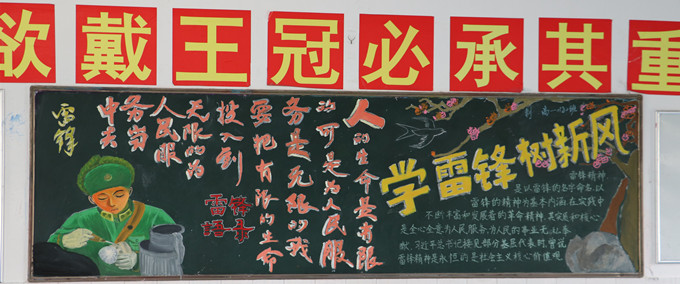 欲戴王冠必承其重
人的生命是有限
的可是为人民服
务是无限的我
要把有限的生命
投入到
无限的为
人民服
务当
中去
雷锋
语录
雷锋
学雷锋树新风
雷锋精神,
是以雷锋的名字命名、以
雷锋的精神为基本内涵、在实践中
不断丰富和发展着的革命精神,其实质和核心
是全心全意为人民服务,为人民的事业无私奉
献。习近平总书记接见部分基层代表时曾说
雷锋精神是永恒的是社会主义核心价值观